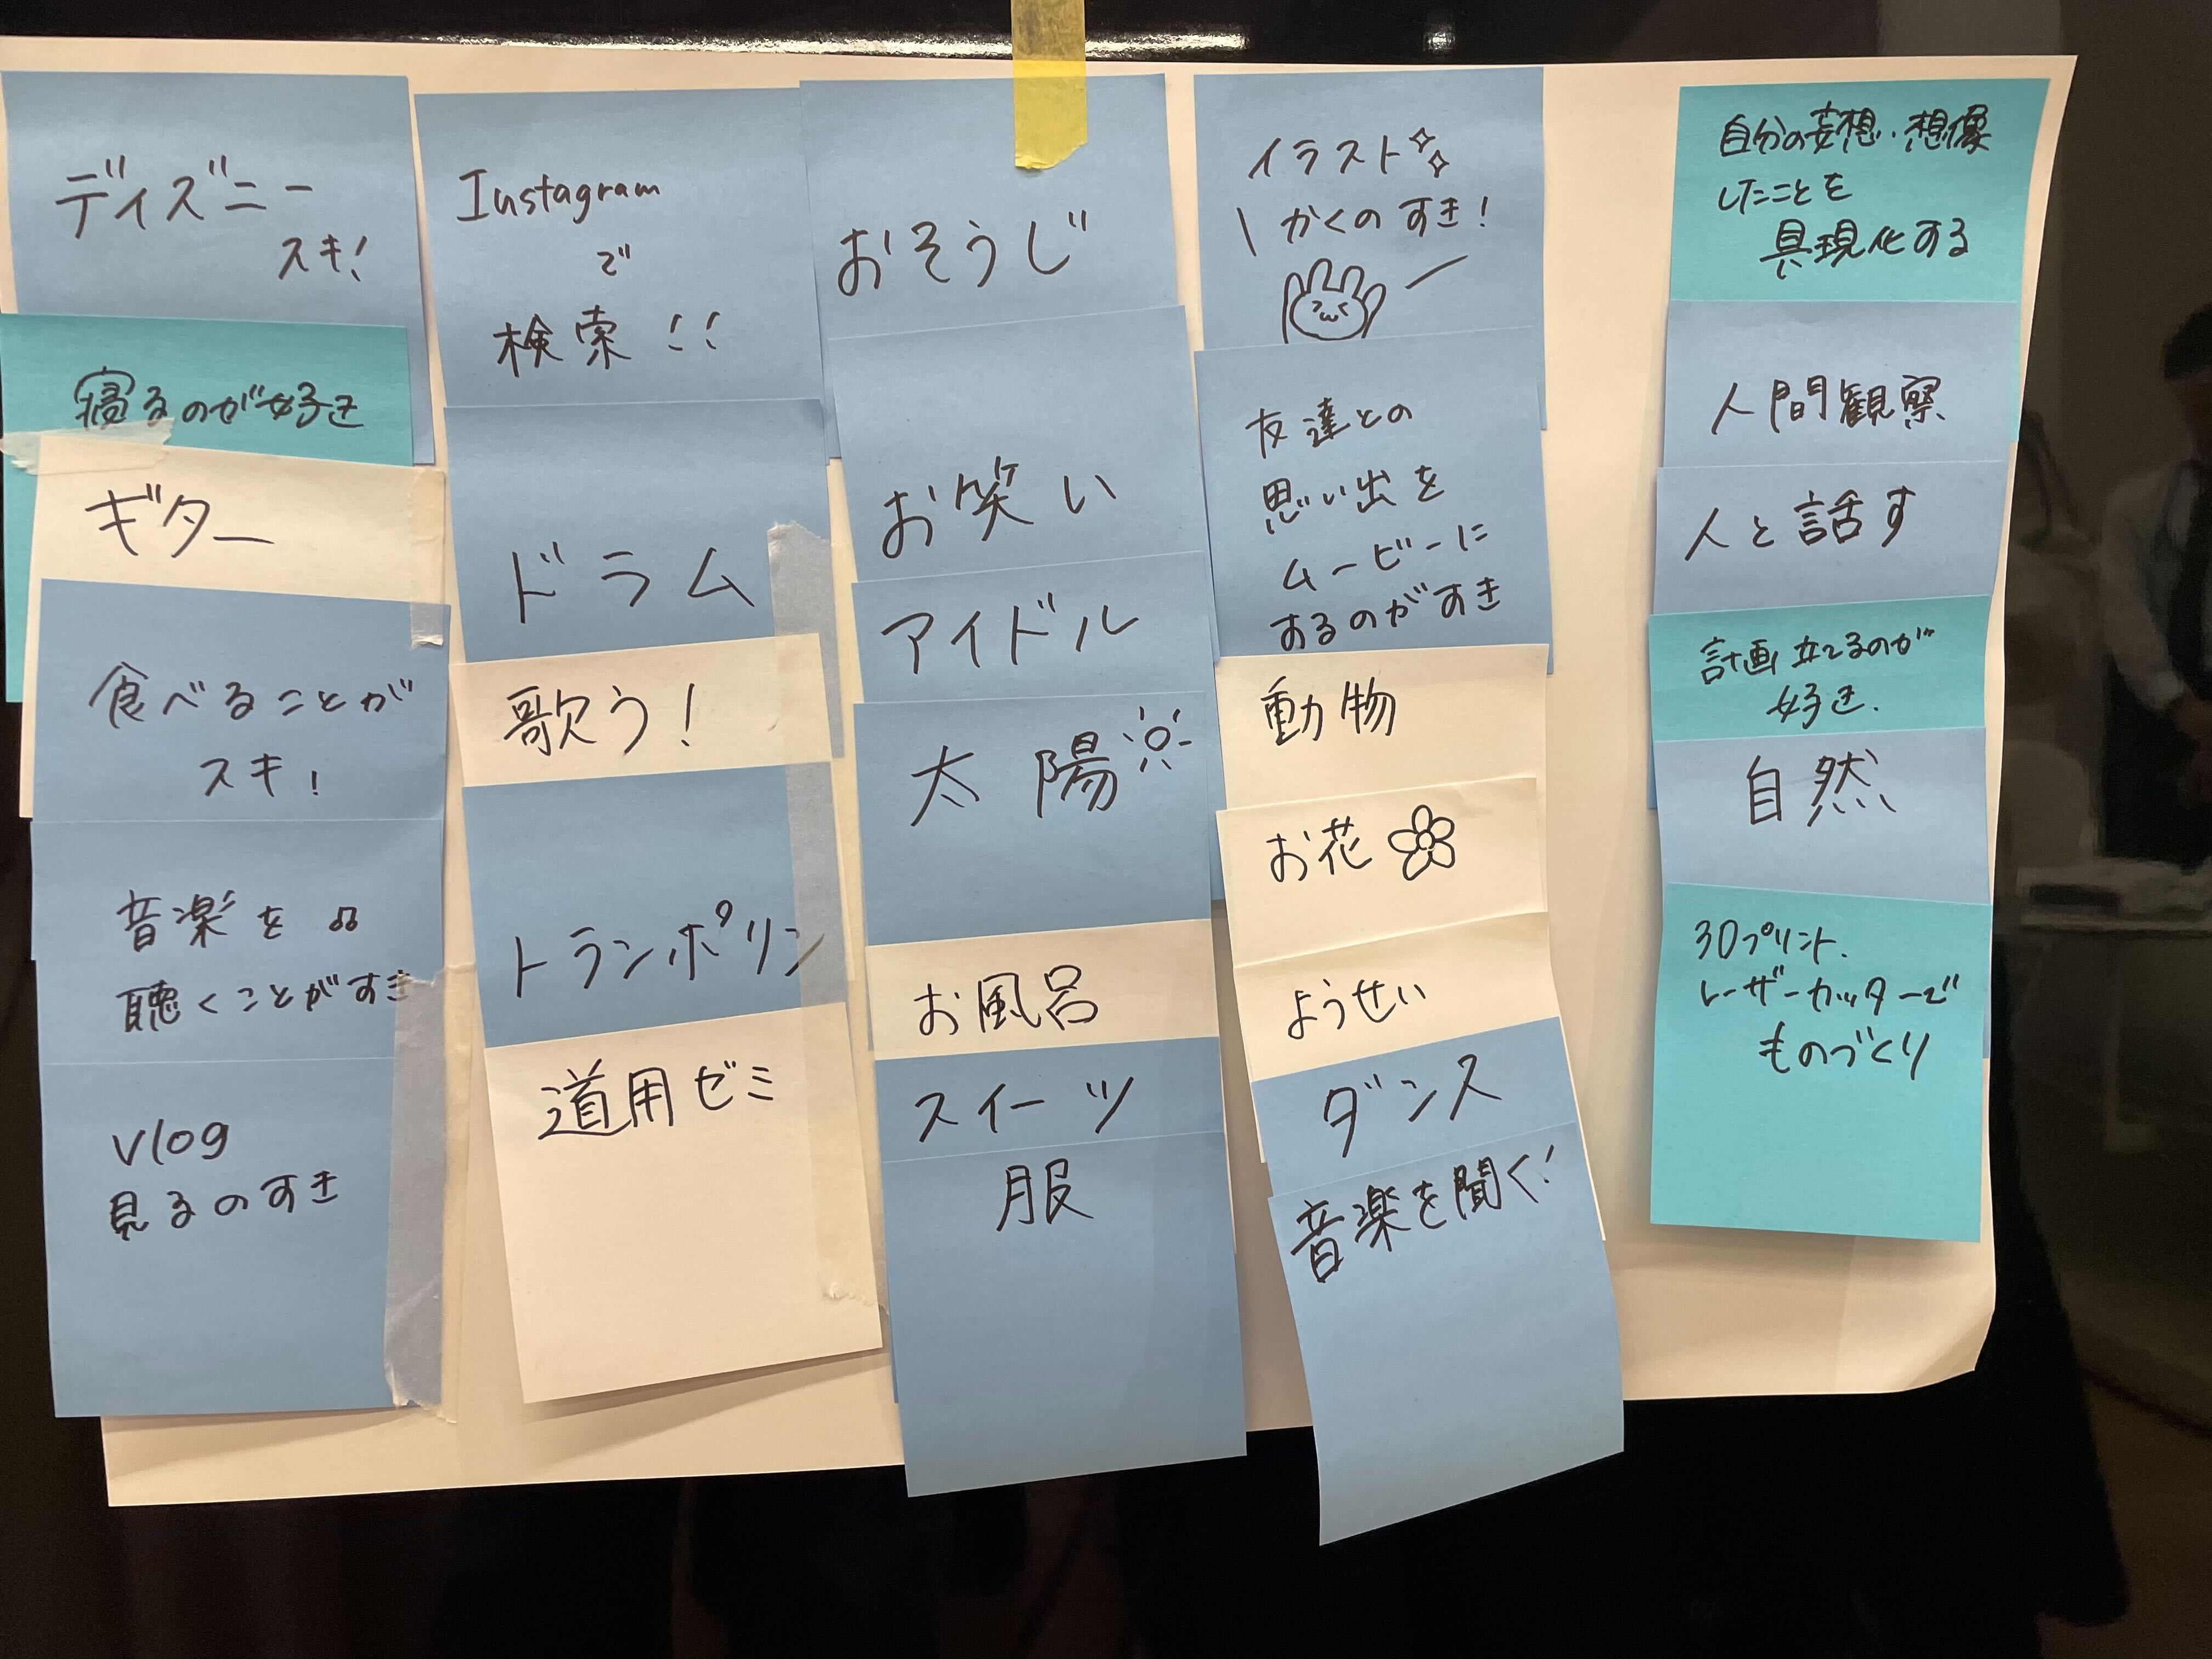 ディズニー
スキ！
寝るのが好き
ギター
食べることが
スキ！
音楽を♫
聴くことがすき
vlog
見るのすき
Instagram
で
検索！！
ドラム
歌う！
トランポリン
道用ゼミ
おそうじ
お笑い
アイドル
太陽
お風呂
スイーツ
服
イラスト
\ かくのすき！ /
友達との
思い出を
ムービーに
するのがすき
動物
お花
ようせい
ダンス
音楽を聞く！
自分の妄想・想像
したことを
具現化する
人間観察
人と話す
計画立てるのが
好き.
自然
3Dプリント.
レーザーカッターで
ものづくり